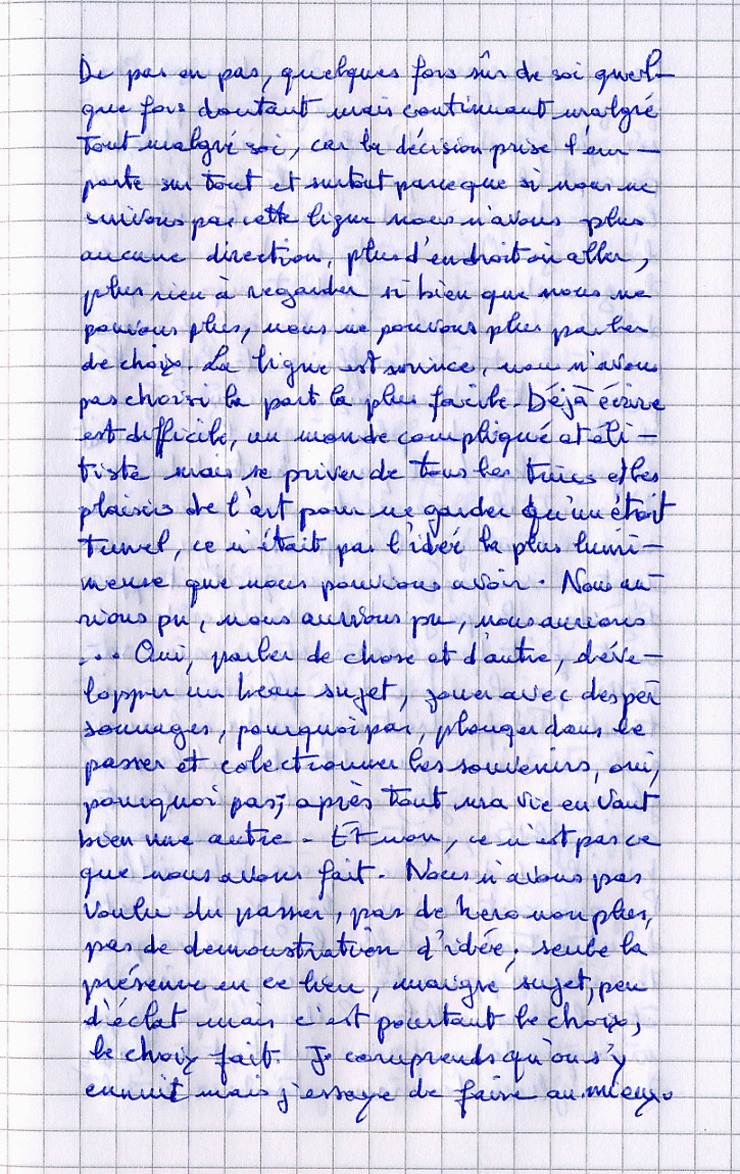 De pas en pas, quelques fois sûr de soi quel-
que fois doutant mais continuant malgré
tout malgré soi, car la décision prise l'em-
porte sur tout et surtout parceque si nous ne
suivons pas cette ligne nous n'avons plus
aucune direction, plus d'endroit où aller,
plus rien à regarder si bien que nous ne
pouvons plus, nous ne pouvons plus parler
de choix. La ligne est mince, nous n'avons
pas choisi la part la plus facile. Déjà écrire
est difficile, un monde compliqué et éli-
tiste mais se priver de tous les trucs et les
plaisirs de l'art pour ne garder qu'un étroit
tunnel, ce n'était pas l'idée la plus lumi-
neuse que nous pouvions avoir. Nous au-
rions pu, nous aurions pu, nous aurions
... Oui, parler de chose et d'autre, déve-
lopper un beau sujet, jouer avec des per
sonnages, pourquoi pas, plonger dans le
passer et colectionner les souvenirs, oui,
pourquoi pas, après tout ma vie en vaut
bien une autre. Et non, ce n'est pas ce
que nous avons fait. Nous n'avons pas
voulu du passer, pas de hero non plus,
pas de demonstration d'idée, seule la
présence en ce lieu, maigre sujet, peu
d'éclat mais c'est pourtant le choix,
le choix fait. Je comprends qu'on s'y
ennuit mais j'essaye de faire au mieux.